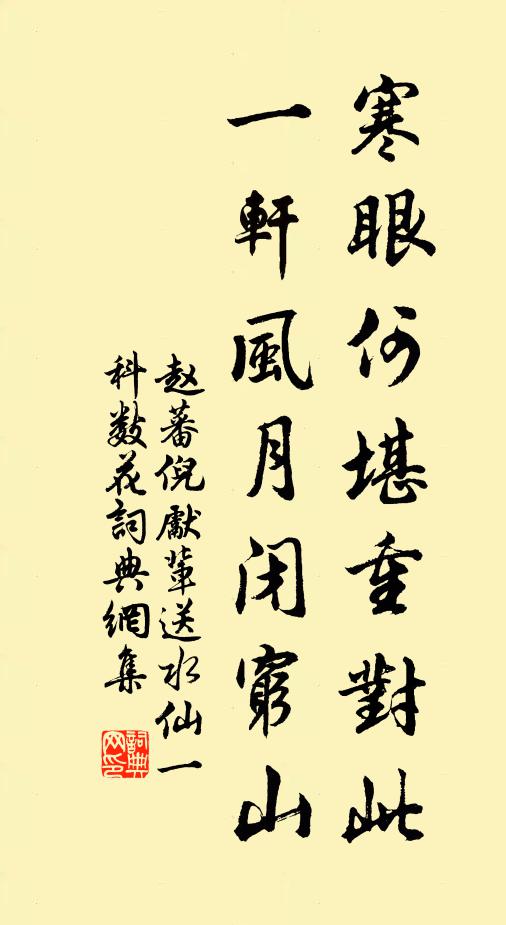 寒眼何堪重對此
一軒風月閉窮山
赵蕃倪獻輩送水仙一
科数花詞典網集
詞典網印